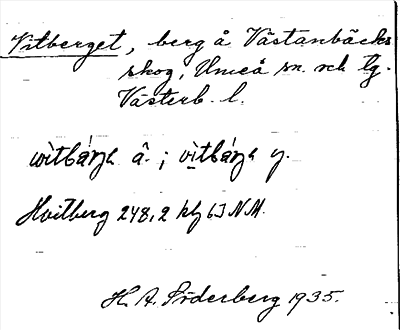 Vitberget, berg å Västanbäcks
skog, Umeå sn. och lg.
Västerb. l.
wìtbár̨ja â. ; vìtbár̨ja y.
Hvitberg 248,2 kbl 63 NM.
H. A. Söderberg 1935.